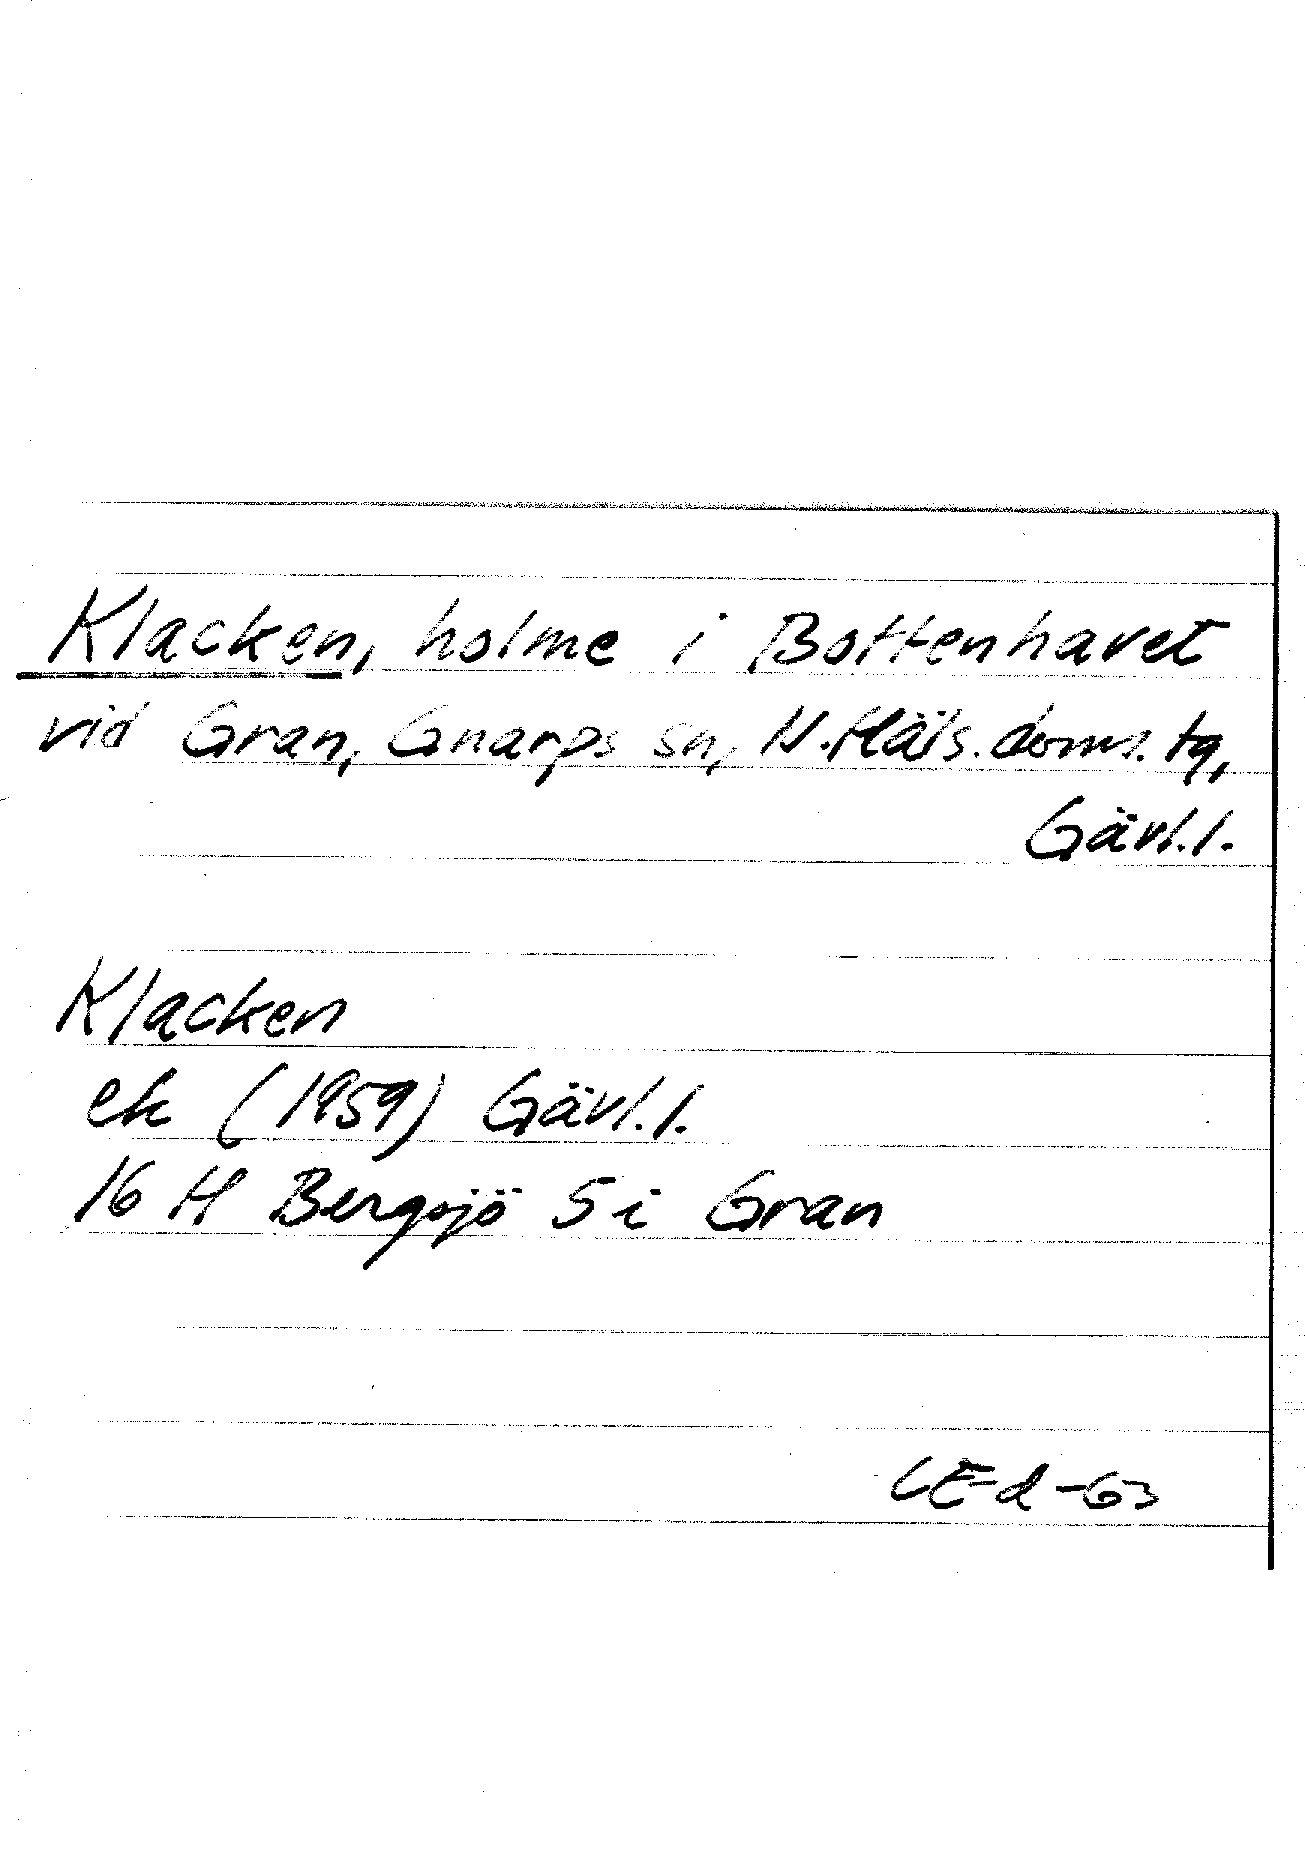 Klacken, holme i Bottenhavet
vid Gran, Gnarps sn, N.Häls.doms.tg,
Gävl.l.
Klacken
ek (1959) Gävl.l.
16 H Bergsjö 5 i Gran
LE-d-63